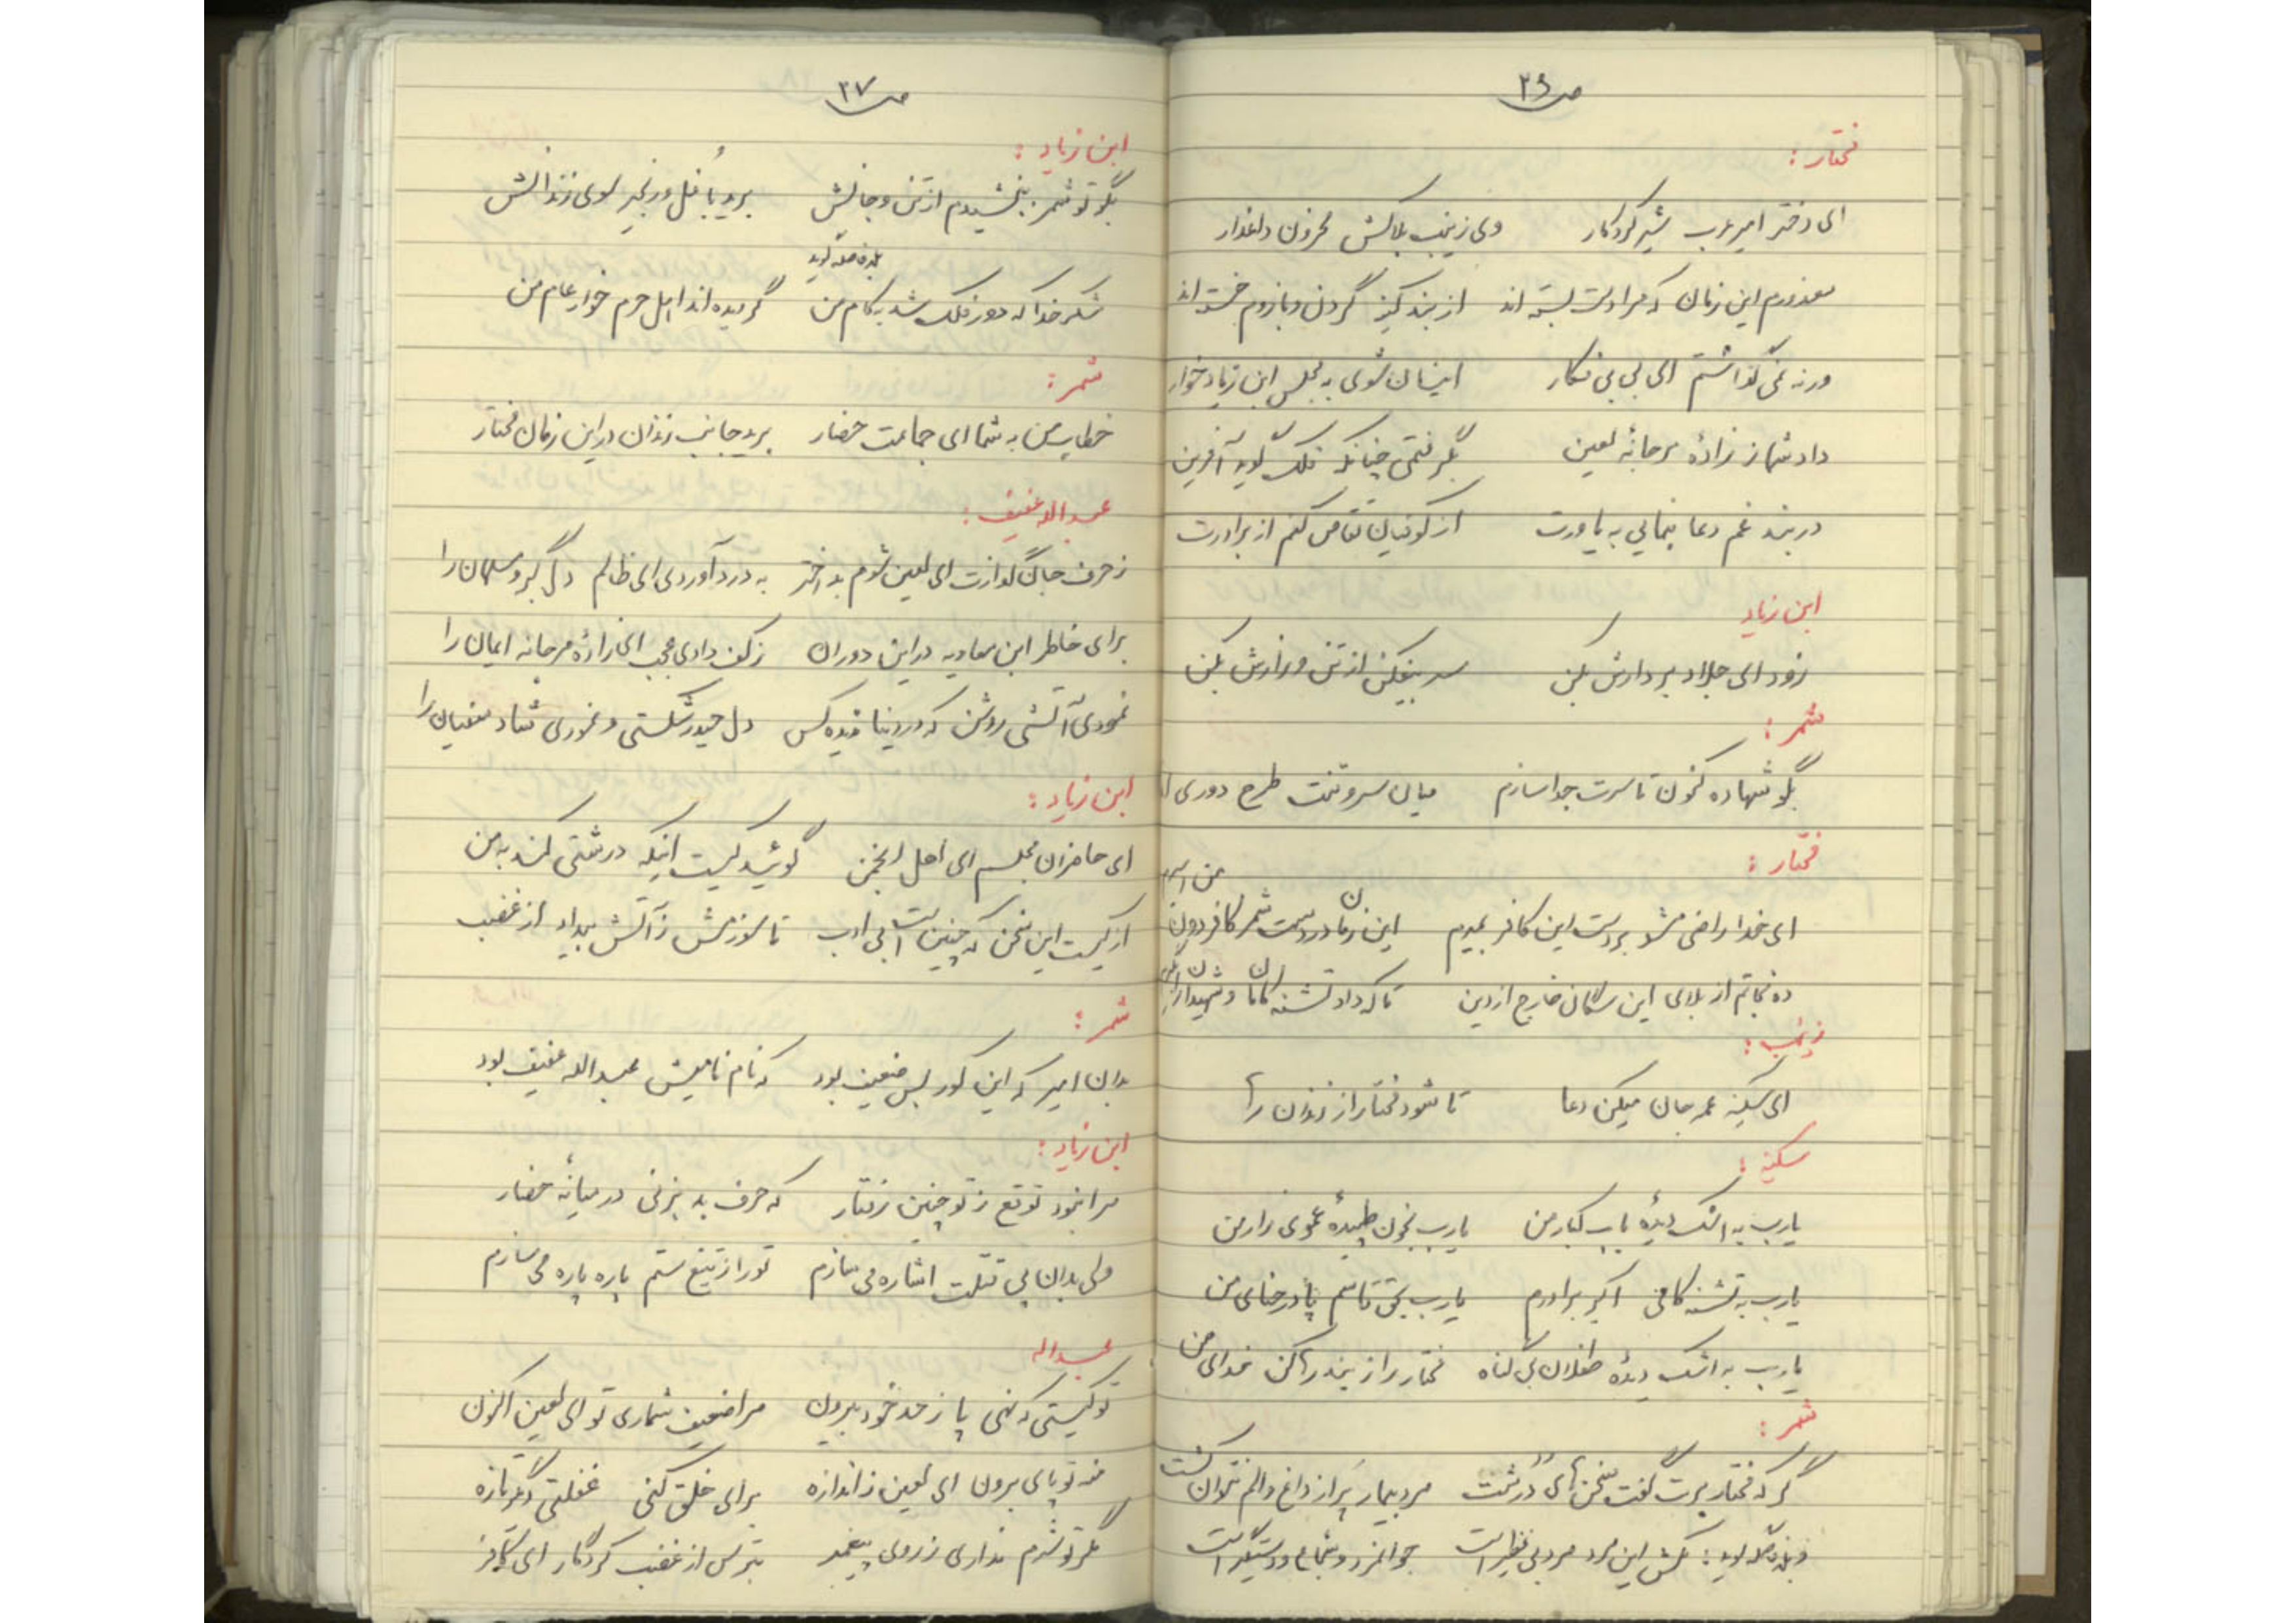 ص ۲۶
مختار :
ای دختر امیر عرب شیر کردگار وی زینب بلاکش محزون دلفکار
معذورم این زمان که مرا دست بسته اند از بند کینه گردن و بازوم خسته اند
ورنه نمی گذاشتم ای بی بی فکار اینسان شوی به مجلس ابن زیاد خوار
داد شما ز زادهٔ مرجانهٔ لعین بگرفتمی چنانکه فلک گوید آفرین
در بند غم دعا بنمایی به یاورت از کوفیان تقاص کنم از برادرت
ابن زیاد
زود ای جلاد بر دارش بکن سر بیفکن از تن و زارش بکن
شمر :
بگو شهاده کنون تا سرت جدا سازم میان سر و تنت طرح دوری
مختار :
ای خدا راضی مشو بر دست این کافر بمیرم این زمان در دست شمر کافر دون من اسیرم
ده نجاتم از بلای این سگان خارج از دین تا که داد تشنه کامان و شهیدان را بگیرم
زینب :
ای سکینه عمه جان میکن دعا تا شود مختار از زندان رها
سکینه :
یارب به اشک دیدهٔ باب کبار من یارب بخون طپیدهٔ عموی زار من
یارب به تشنه کامی اکبر برادرم یارب بحق قاسم پا در حنای من
یارب به اشک دیدهٔ طفلان بی گناه مختار را ز بند رها کن خدای من
شمر :
گر که مختار برت گفت سخن های درشت مرد بیمار پر از داغ و الم نتوان کشت
و بلافاصله گوید : مکش این مرد مرد بی نظیر است جوانمرد و شجاع و دستگیر است
ص ۲۷
ابن زیاد :
بگو تو شمر ببخشیدم از تن و جانش برید با غل و زنجیر سوی زندانش
بلافاصله گوید
شکر خدا که دور فلک شد به کام من گردیده اند اهل حرم خوار عام من
شمر :
خطاب من به شما ای جماعت حضار برید جانب زندان در این زمان مختار
عبداله عفیف :
ز حرف جان گدازت ای لعین شوم بد اختر به درد آوردی ای ظالم دل گبر و مسلمان را
برای خاطر ابن معاویه در این دوران ز کف دادی عجب ای زادهٔ مرجانه ایمان را
نمودی آتشی روشن که در دنیا ندیده کس دل حیدر شکستی و نمودی شاد سفیان را
ابن زیاد :
ای حاضران مجلس ای اهل انجمن گوئید کیست اینکه درشتی کند به من
از کیست این سخن که چنین است بی ادب تا سوزمش ز آتش بیداد از غضب
شمر :
بدان امیر که این کور بس ضعیف بود که نام نامیش عبداله عفیف بود
ابن زیاد :
مرا نبود توقع ز تو چنین رفتار که حرف بد بزنی در میانهٔ حضار
ولی بدان پی قتلت اشاره می سازم تو را ز تیغ ستم پاره پاره می سازم
عبداله
تو کیستی که نهی پا ز حد خود بیرون مرا ضعیف شماری تو ای لعین اکنون
منه تو پای برون ای لعین ز اندازه برای خلق کنی غفلتی دگر تازه
مگر تو شرم نداری ز روی پیغمبر بترس از غضب کردگار ای کافر